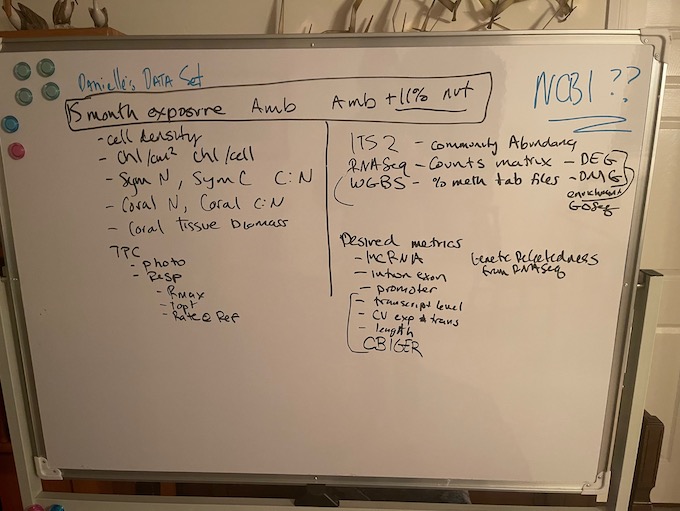 Danielle's Data Set
NCBI ??
5 month exposure Amb Amb + 11% nut
- cell density
- Chl/cm² chl/cell
- Sym N, Sym C C:N
- Coral N, Coral C:N
- Coral tissue biomass
TPC
- photo
- Resp
- Rmax
- Topt
- Rate @ Ref
ITS2 - community Abundanc
RNASeq - Counts matrix - DEG
WGBS - % meth tab files - DMG
enrichment
GOSeq
Desired metrics
- lncRNA
- intron exon
- promoter
- transcript level
- CV exp & trans
- length
CBIGER
Genetic Relatedness
from RNASeq